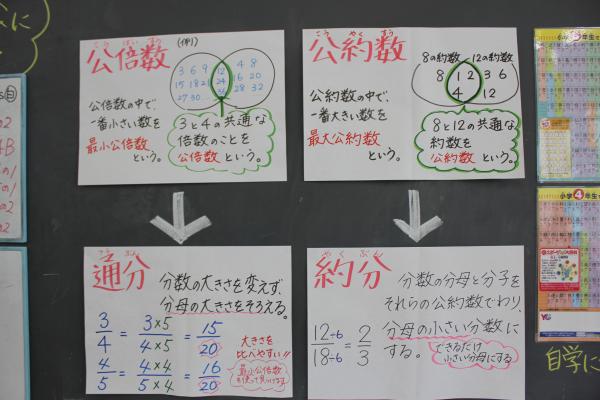 こうばいすう
公倍数
(例)
3 6 9
15 18 21
27 30
12
24
36
4 8
16 20
28 32
公倍数の中で、
一番小さい数を
最小公倍数
という。
3と4の共通な
倍数のことを
公倍数という。
こうやくすう
公約数
8の約数 12の約数
8 1 2 3 6
4 12
公約数の中で、
一番大きい数を
最大公約数
という。
8と12の共通な
約数を
公約数という。
つうぶん
通分
分数の大きさを変えず、
分母の大きさをそろえる。
3/4 = 3×5/4×5 = 15/20
4/5 = 4×4/5×4 = 16/20
大きさを
比べやすい!!
最小公倍数
を使って見つける
やくぶん
約分
分数の分母と分子を
それらの公約数でわり、
分母の小さい分数に
する。
12÷6/18÷6 = 2/3
できるだけ
小さい分母にする
小学4年生
自学に